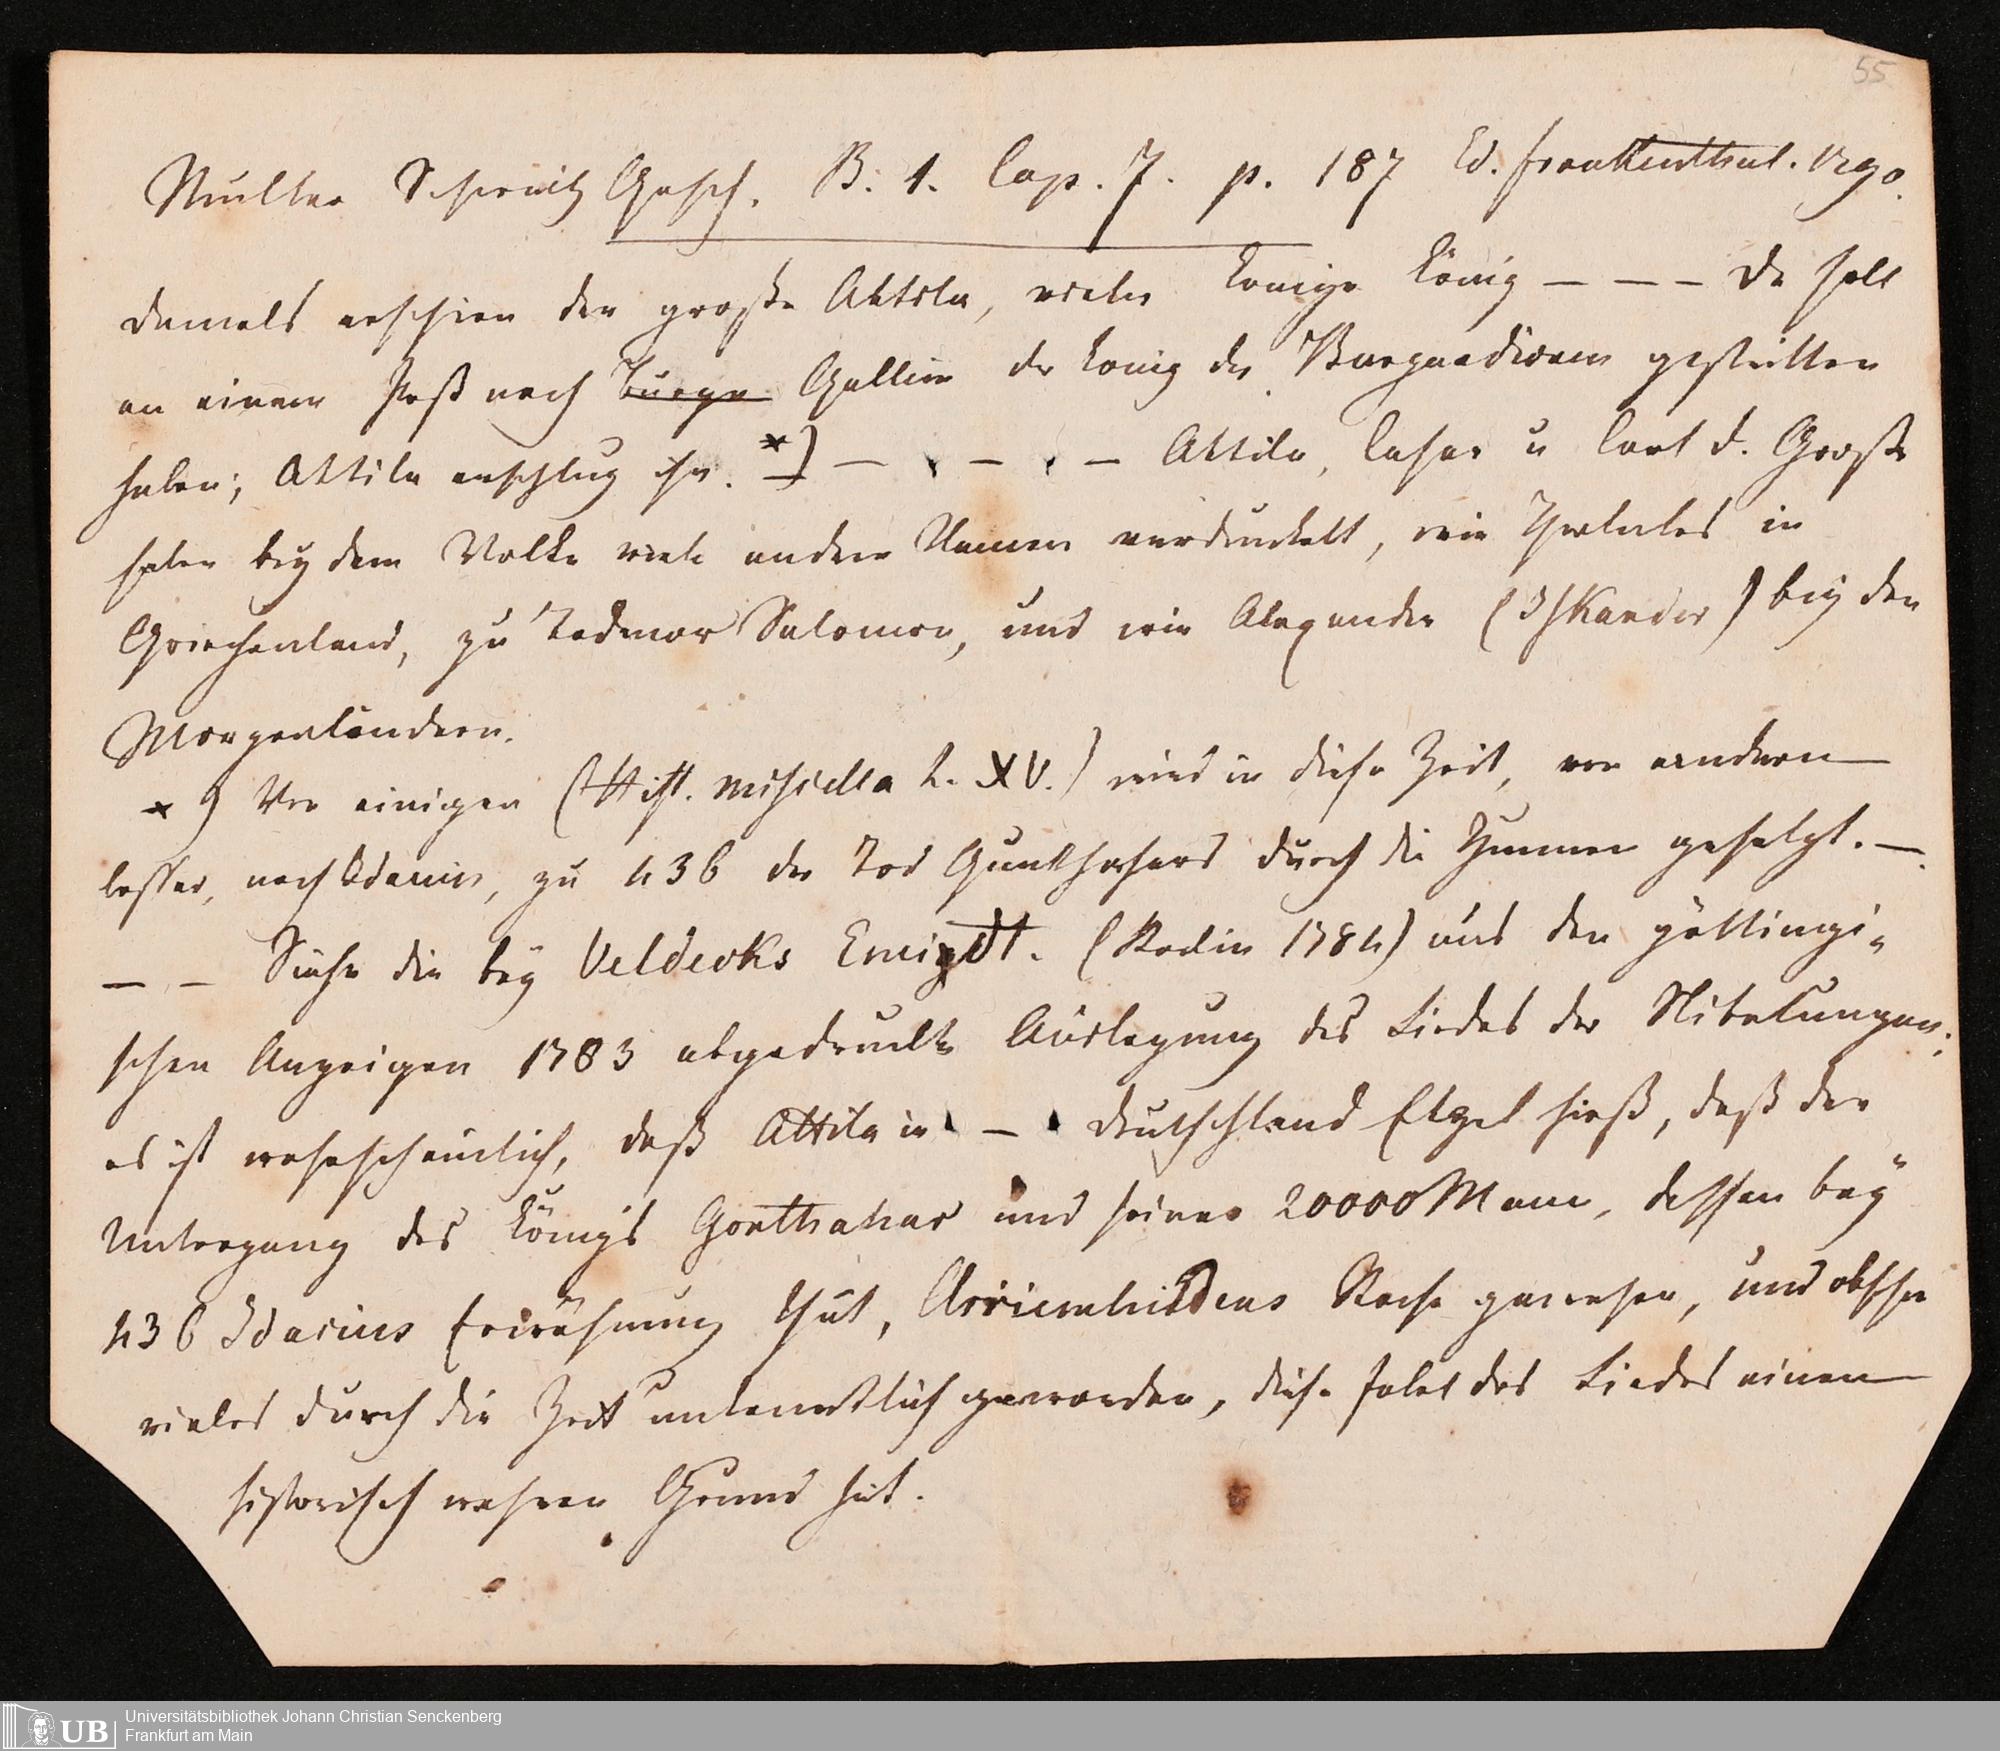 55
Muller Schweitz Gesch. B. 1. Cap. 7. p. 187 Ed. Frankenthal. 1790.
Damals erschien der große Attila, vieler Konige König – – – Da soll
an einem Paß nach Burgu Gallien der Konig der Burgundionen gestritten
haben; Attila erschlug ihn. *) – – – Attila, Cäsar u Carl d. Große
haben bey dem Volke viele andere Namen verdunkelt, wie Herkules in
Griechenland, zu Tadmor Salomon, und wie Alexander (Iskander) bey den
Morgenländern.
*) Von einigen (Hist. miscella L. XV.) wird in diese Zeit, von andern
besser, nach Idacius, zu 436 der Tod Gunthahars durch die Hunnen gesetzt. –
– – Siehe die bey Veldecks Eneidt. (Berlin 1784) und den göttingi-
schen Anzeigen 1783 abgedruckte Auslegung des Liedes der Nibelungen;
es ist wahrscheinlich, daß Attila in – Deutschland Etzel hieß, daß der
Untergang des Königs Gonthahar und seiner 20000 Mann, dessen bey
436 Idacius Erwähnung thut, Chriemhildens Rache gewesen, und obschon
vieles durch die Zeit unkenntlich geworden, diese Fabel des Liedes einen
historisch wahren Grund hat.
UB Universitätsbibliothek Johann Christian Senckenberg
Frankfurt am Main